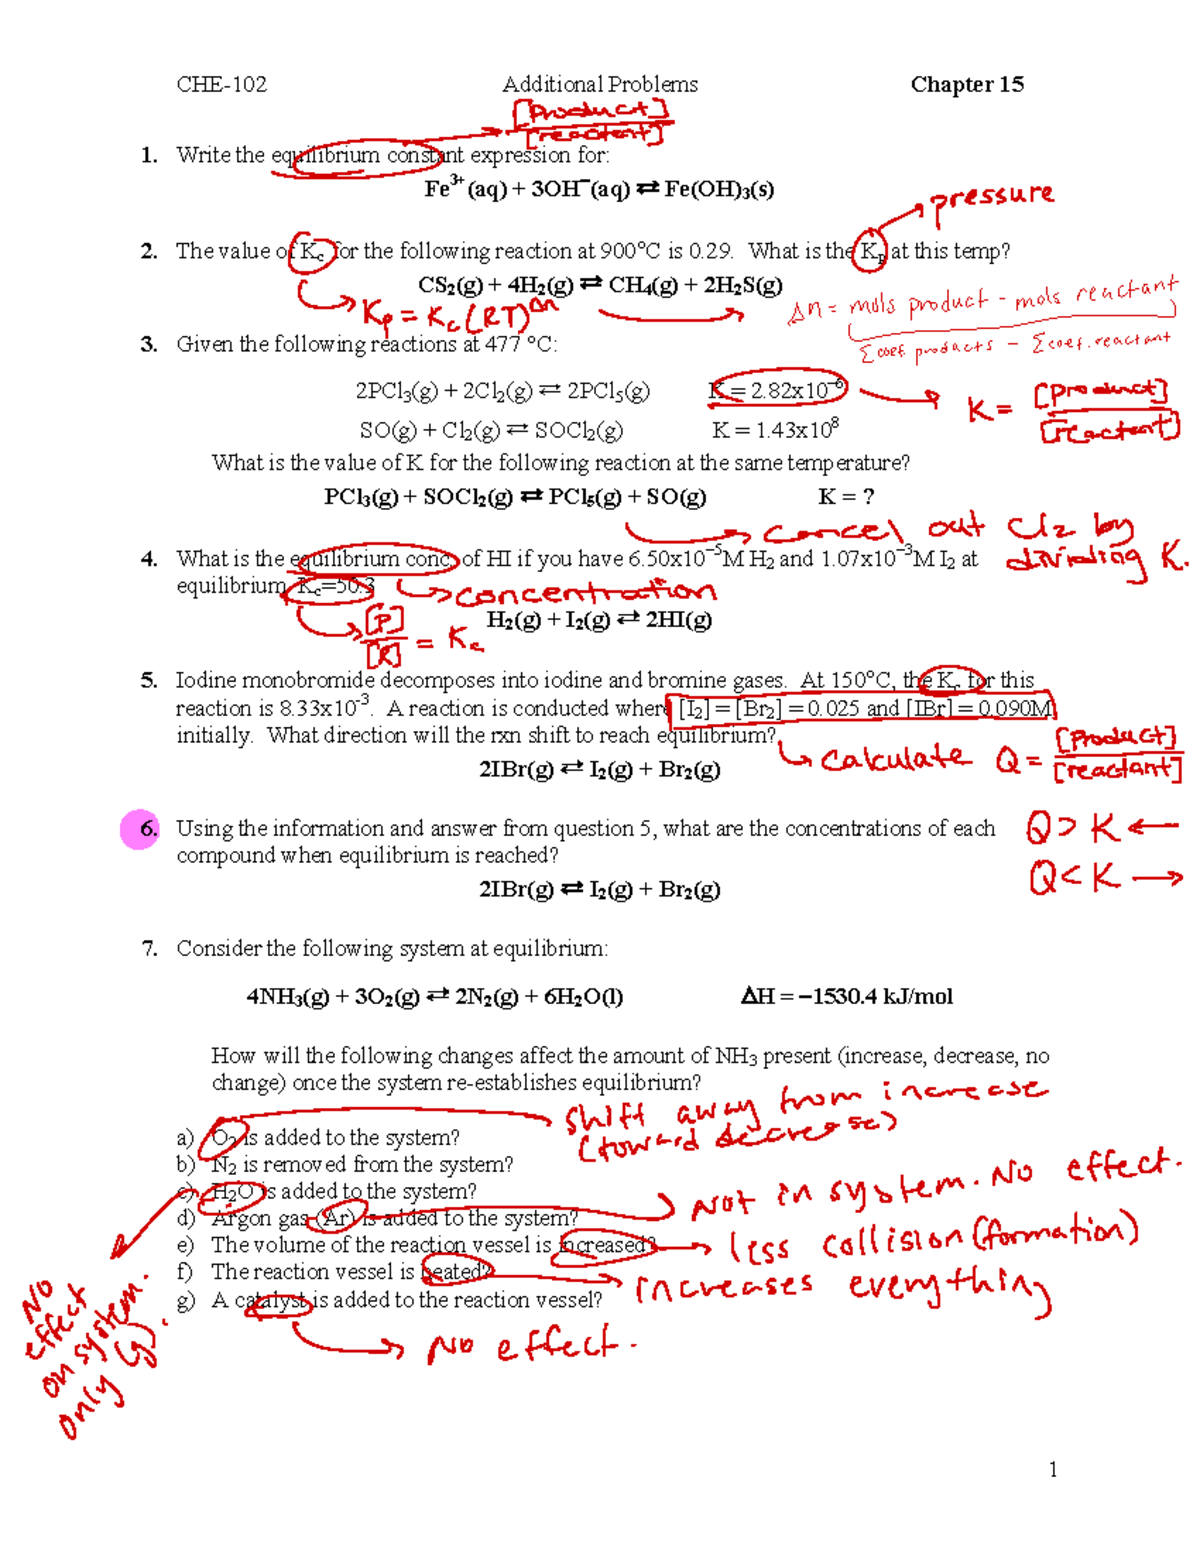 CHE-102 Additional Problems Chapter 15
[Product]
[reactant]
1. Write the equilibrium constant expression for:
Fe³⁺(aq) + 3OH⁻(aq) ⇄ Fe(OH)₃(s)
pressure
2. The value of Kc for the following reaction at 900°C is 0.29. What is the Kp at this temp?
CS₂(g) + 4H₂(g) ⇄ CH₄(g) + 2H₂S(g)
Kp = Kc(RT)^Δn
Δn = mols product - mols reactant
Σcoef. products - Σcoef. reactant
3. Given the following reactions at 477 °C:
2PCl₃(g) + 2Cl₂(g) ⇄ 2PCl₅(g) K = 2.82x10⁻⁶
K = [Product]
[reactant]
SO(g) + Cl₂(g) ⇄ SOCl₂(g) K = 1.43x10⁸
What is the value of K for the following reaction at the same temperature?
PCl₃(g) + SOCl₂(g) ⇄ PCl₅(g) + SO(g) K = ?
cancel out Cl₂ by
dividing K.
4. What is the equilibrium conc. of HI if you have 6.50x10⁻⁵M H₂ and 1.07x10⁻³M I₂ at
equilibrium. Kc=50.3
concentration
H₂(g) + I₂(g) ⇄ 2HI(g)
[P]
[R] = Kc
5. Iodine monobromide decomposes into iodine and bromine gases. At 150°C, the Kc for this
reaction is 8.33x10⁻³. A reaction is conducted where [I₂] = [Br₂] = 0.025 and [IBr] = 0.090M
initially. What direction will the rxn shift to reach equilibrium?
calculate Q = [Product]
[reactant]
2IBr(g) ⇄ I₂(g) + Br₂(g)
6. Using the information and answer from question 5, what are the concentrations of each
compound when equilibrium is reached?
2IBr(g) ⇄ I₂(g) + Br₂(g)
Q > K ←
Q < K →
7. Consider the following system at equilibrium:
4NH₃(g) + 3O₂(g) ⇄ 2N₂(g) + 6H₂O(l) ΔH = −1530.4 kJ/mol
How will the following changes affect the amount of NH₃ present (increase, decrease, no
change) once the system re-establishes equilibrium?
shift away from increase
(toward decrease)
a) O₂ is added to the system?
b) N₂ is removed from the system?
c) H₂O is added to the system?
Not in system. No effect.
d) Argon gas (Ar) is added to the system?
e) The volume of the reaction vessel is increased?
less collision (formation)
f) The reaction vessel is heated?
increases everything
g) A catalyst is added to the reaction vessel?
No effect.
No
effect
on system.
only (g).
1